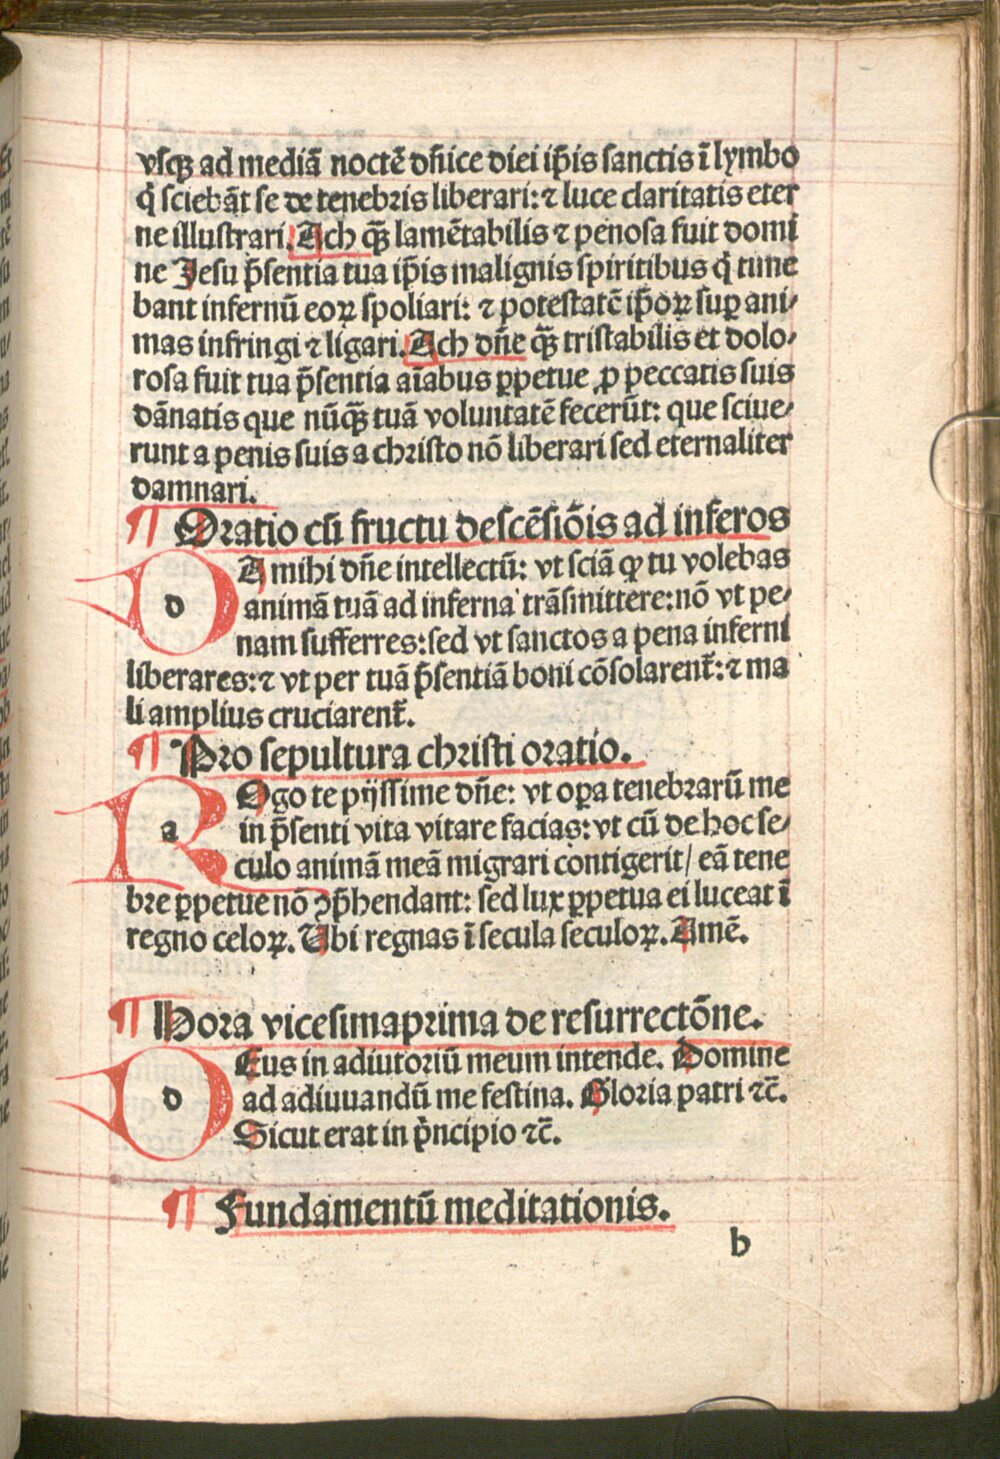 vsqꝫ ad mediā noctē dn̄ice diei ip̄is sanctis ī lymbo
q̇ sciebāt se de tenebris liberari: ⁊ luce claritatis eter
ne illustrari. Ach qꝫ̄ lamētabilis ⁊ penosa fuit domi
ne Jesu p̄sentia tua ip̄is malignis spiritibus q̇ time
bant infernū eoꝝ spoliari: ⁊ potestatē ip̄oꝝ suꝑ ani⸗
mas infringi ⁊ ligari. Ach dn̄e qꝫ̄ tristabilis et dolo⸗
rosa fuit tua p̄sentia aīabus ꝑpetue ꝓ peccatis suis
dānatis que nūqꝫ̄ tuā voluntatē fecerūt: que sciue⸗
runt a penis suis a christo nō liberari sed eternaliter
damnari.
¶ Oratio cū fructu descēsiōis ad inferos
DA mihi dn̄e intellectū: vt sciā ꝙ tu volebas
animā tuā ad inferna trāsmittere: nō vt pe⸗
nam sufferres: sed vt sanctos a pena inferni
liberares: ⁊ vt per tuā p̄sentiā boni cōsolarent̄: ⁊ ma
li amplius cruciarent̄.
¶ Pro sepultura christi oratio.
ROgo te pijssime dn̄e: vt oꝑa tenebrarū me
in p̄senti vita vitare facias: vt cū de hoc se⸗
culo animā meā migrari contigerit/ eā tene
bre ꝑpetue nō ꝯp̄hendant: sed lux ꝑpetua ei luceat ī
regno celoꝝ. Ubi regnas ī secula seculoꝝ. Amē.
¶ Hora vicesimaprima de resurrectōne.
DEus in adiutoriū meum intende. Domine
ad adiuuandū me festina. Gloria patri ⁊c̄.
Sicut erat in pͥncipio ⁊c̄.
¶ Fundamentū meditationis.
b